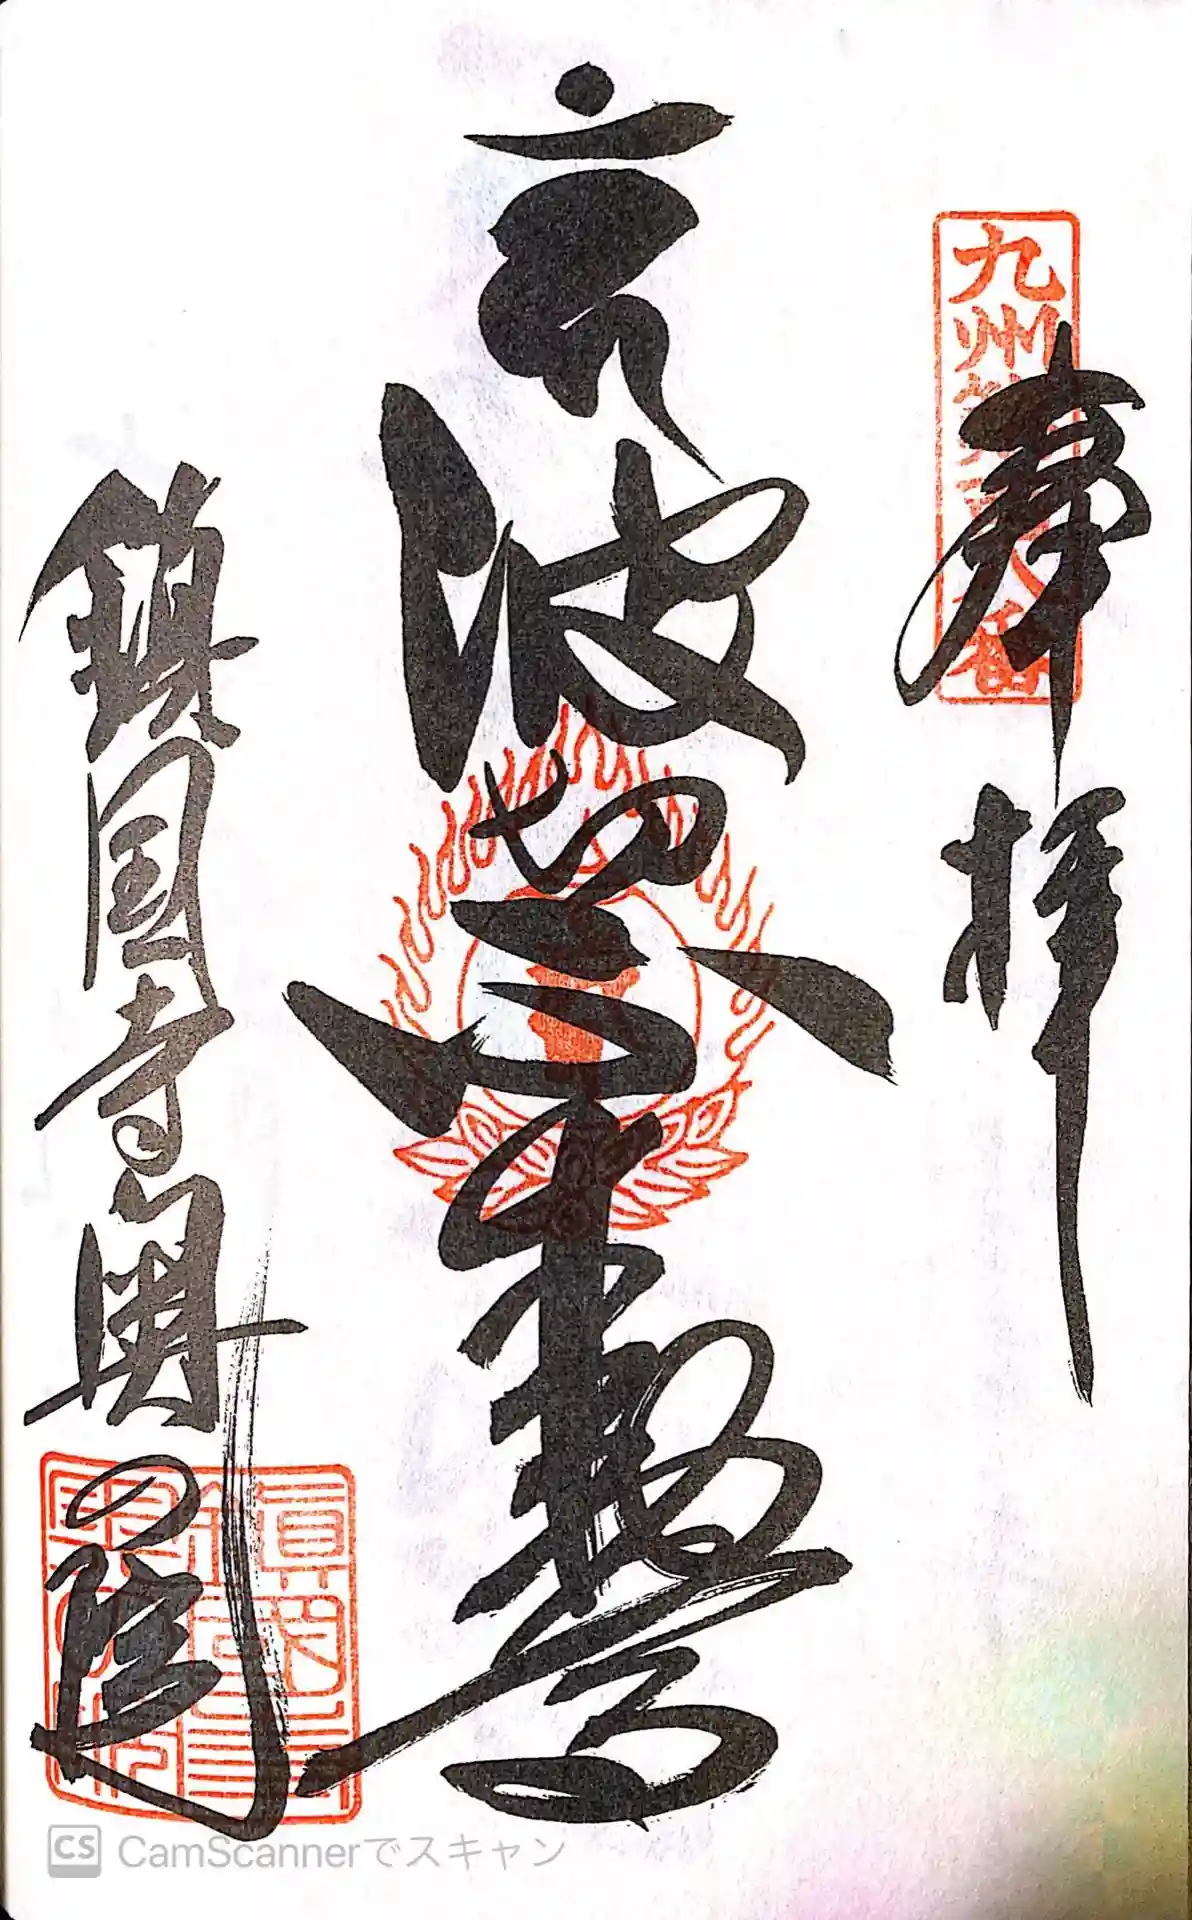 九州 番
奉拝
波切不動尊
鎮国寺奥の院
CS CamScannerでスキャン